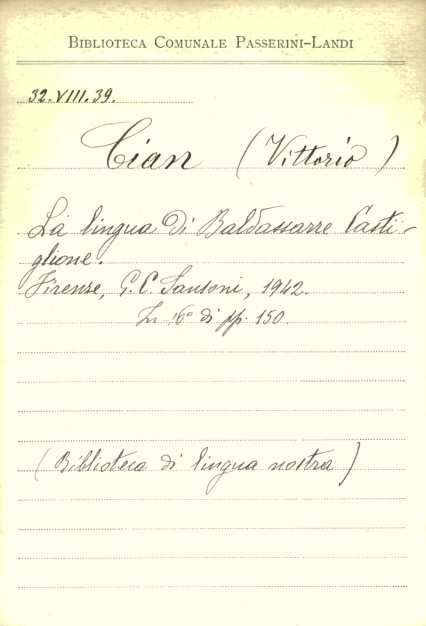 BIBLIOTECA COMUNALE PASSERINI-LANDI
32.VIII.39.
Cian (Vittorio)
La lingua di Baldassarre Casti-
glione.
Firenze, G. C. Sansoni, 1942.
In 16° di pp. 150.
(Biblioteca di lingua nostra)